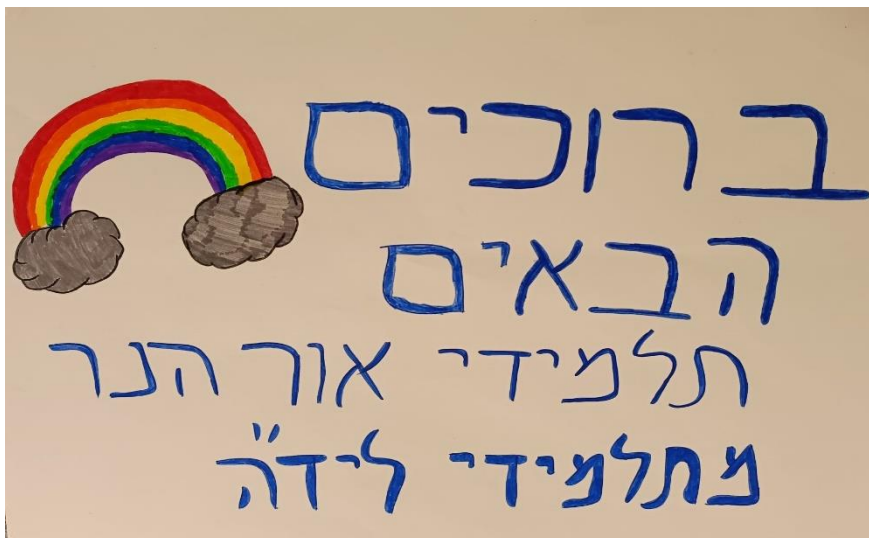 ברוכים
הבאים
תלמידי אור הנר
מתלמידי ליד"ה